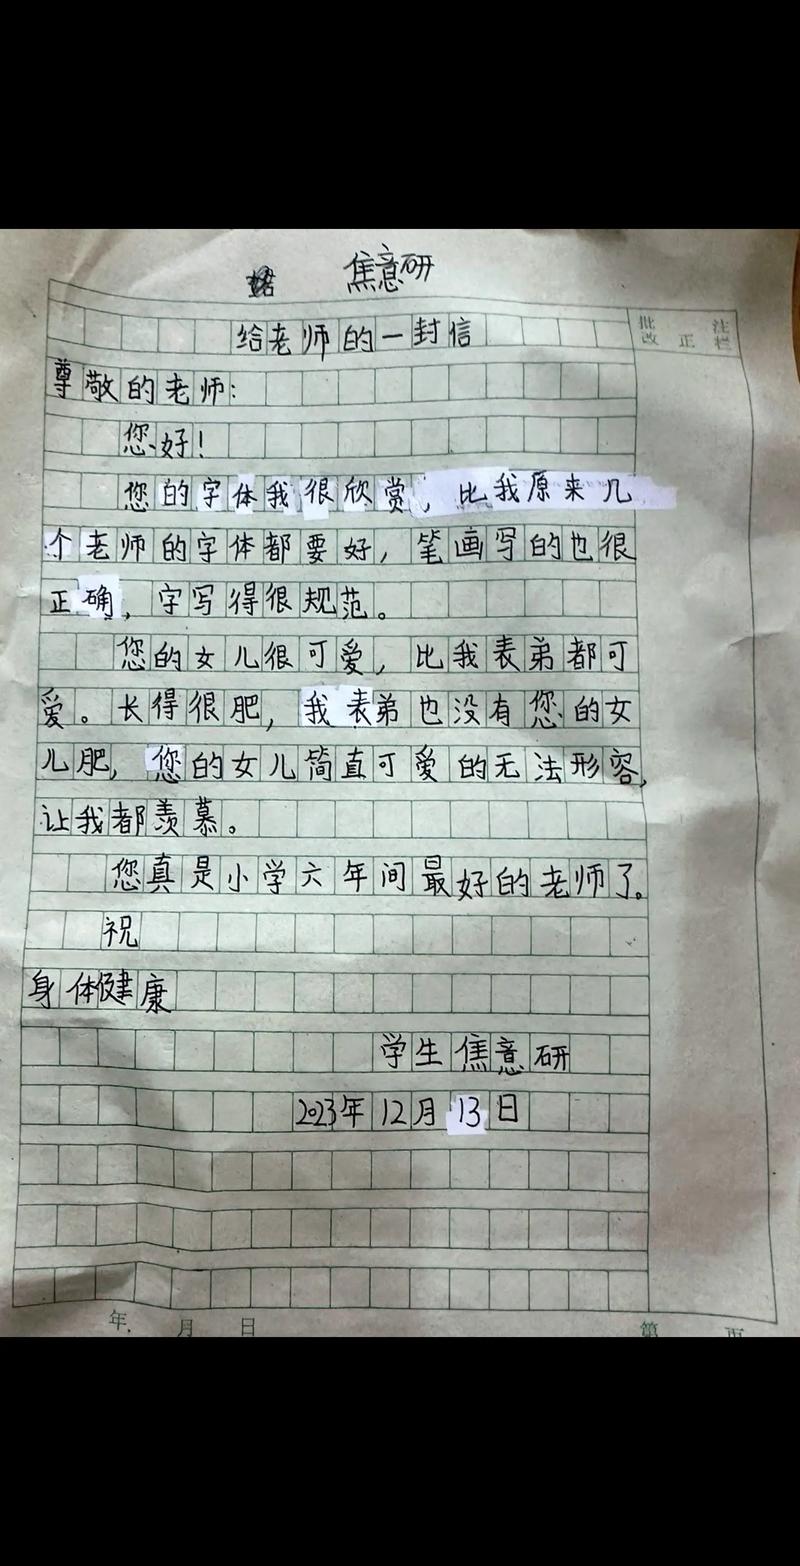 焦意研
给老师的一封信
批 注
改 正 栏
尊敬的老师:
您好!
您的字体我很欣赏,比我原来几
个老师的字体都要好,笔画写的也很
正确,字写得很规范。
您的女儿很可爱,比我表弟都可
爱。长得很肥,我表弟也没有您的女
儿肥,您的女儿简直可爱的无法形容,
让我都羡慕。
您真是小学六年间最好的老师了。
祝
身体健康
学生焦意研
2023年12月13日
年 月 日 第 页